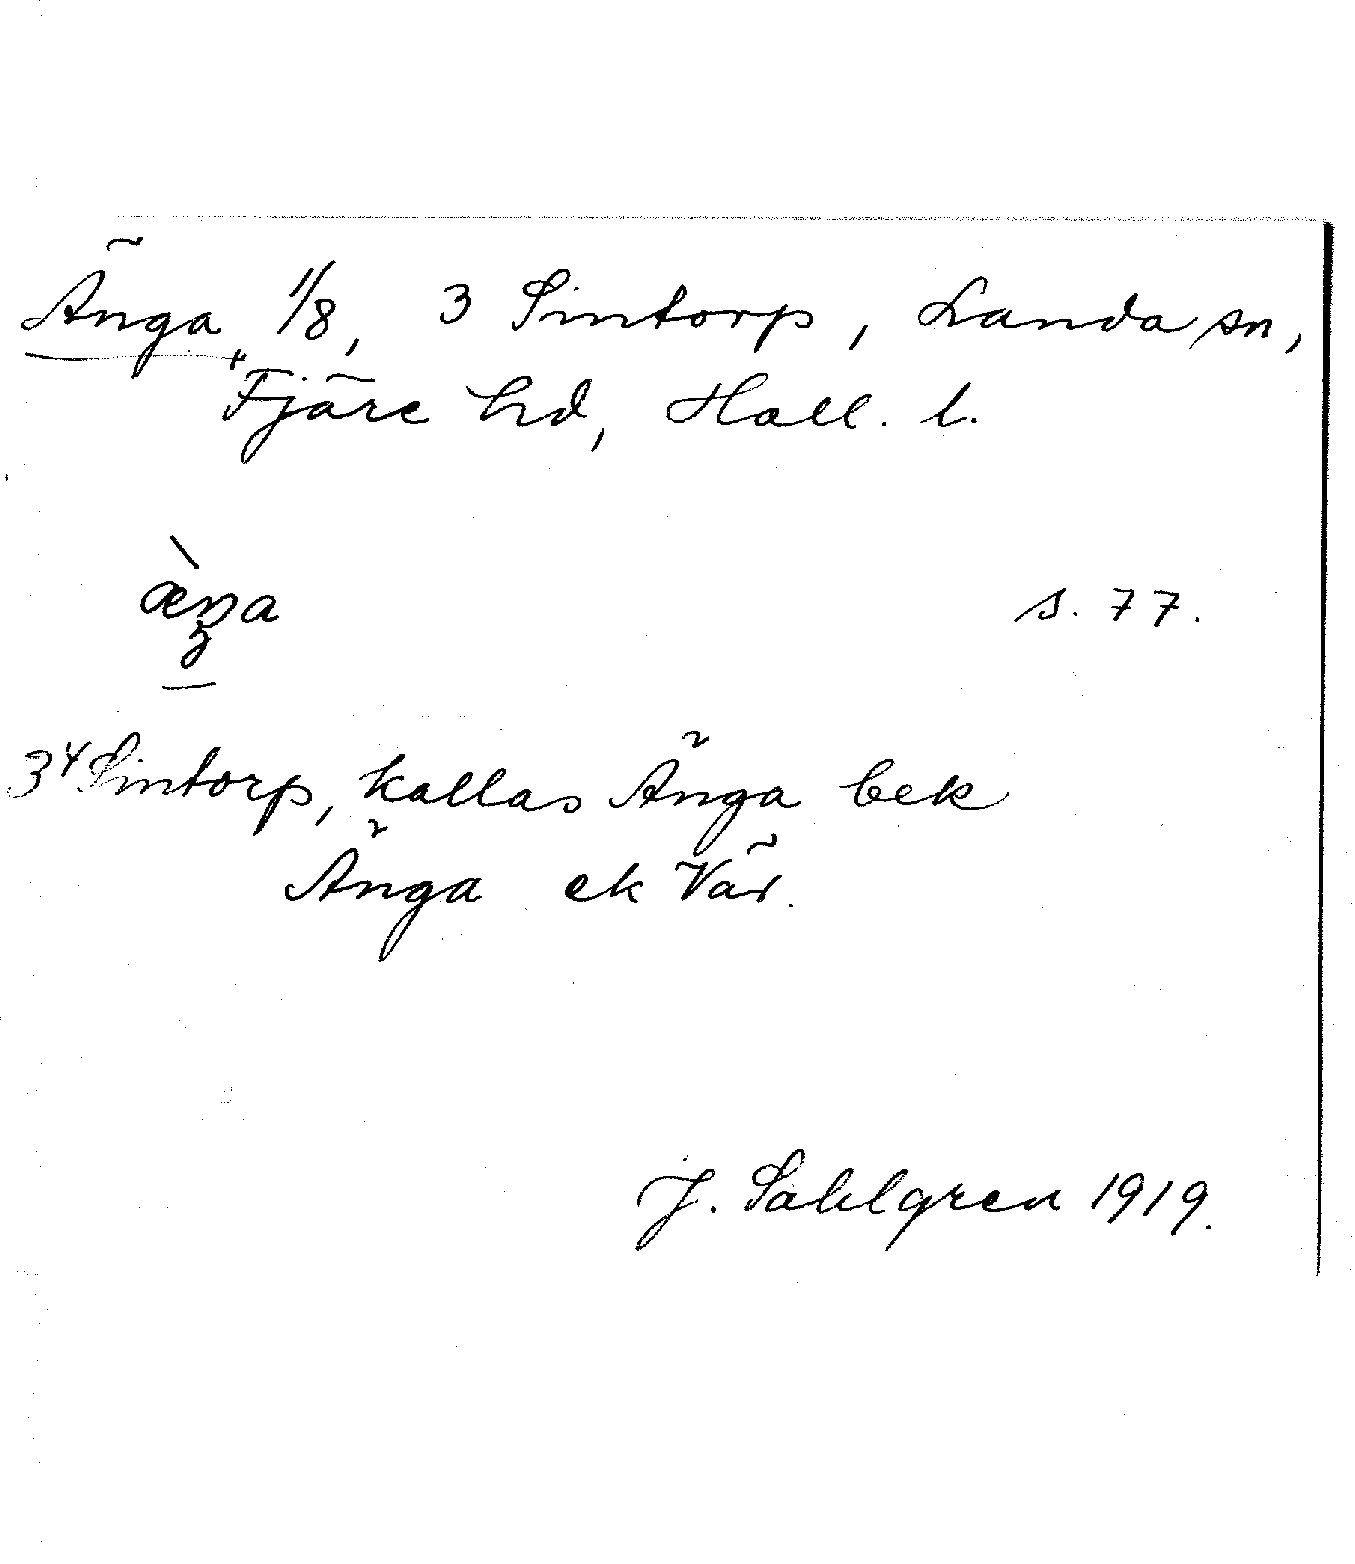 Änga, 1/8, 3 Sintorp, Landa sn,
Fjäre hd, Hall. l.
s. 77.
3⁴ Sintorp, kallas Änga bek
Änga ek Vär.
J. Sahlgren 1919.